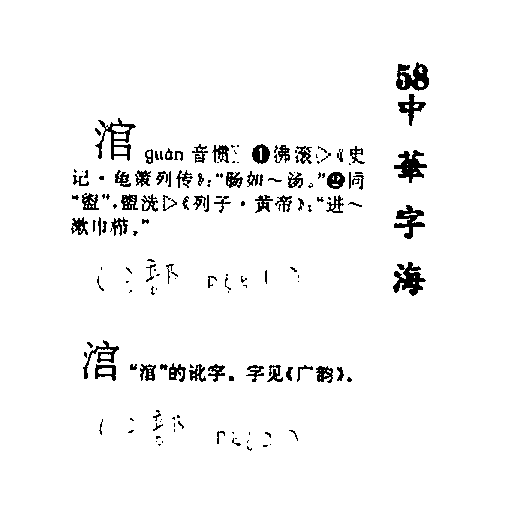 58
中華字海
涫 guàn 音惯 ❶沸滚▷《史
记·龟策列传》:“肠如～汤。”❷同
“盥”,盥洗▷《列子·黄帝》:“进～
漱巾栉。”
部
“涫”的讹字。字见《广韵》。
部